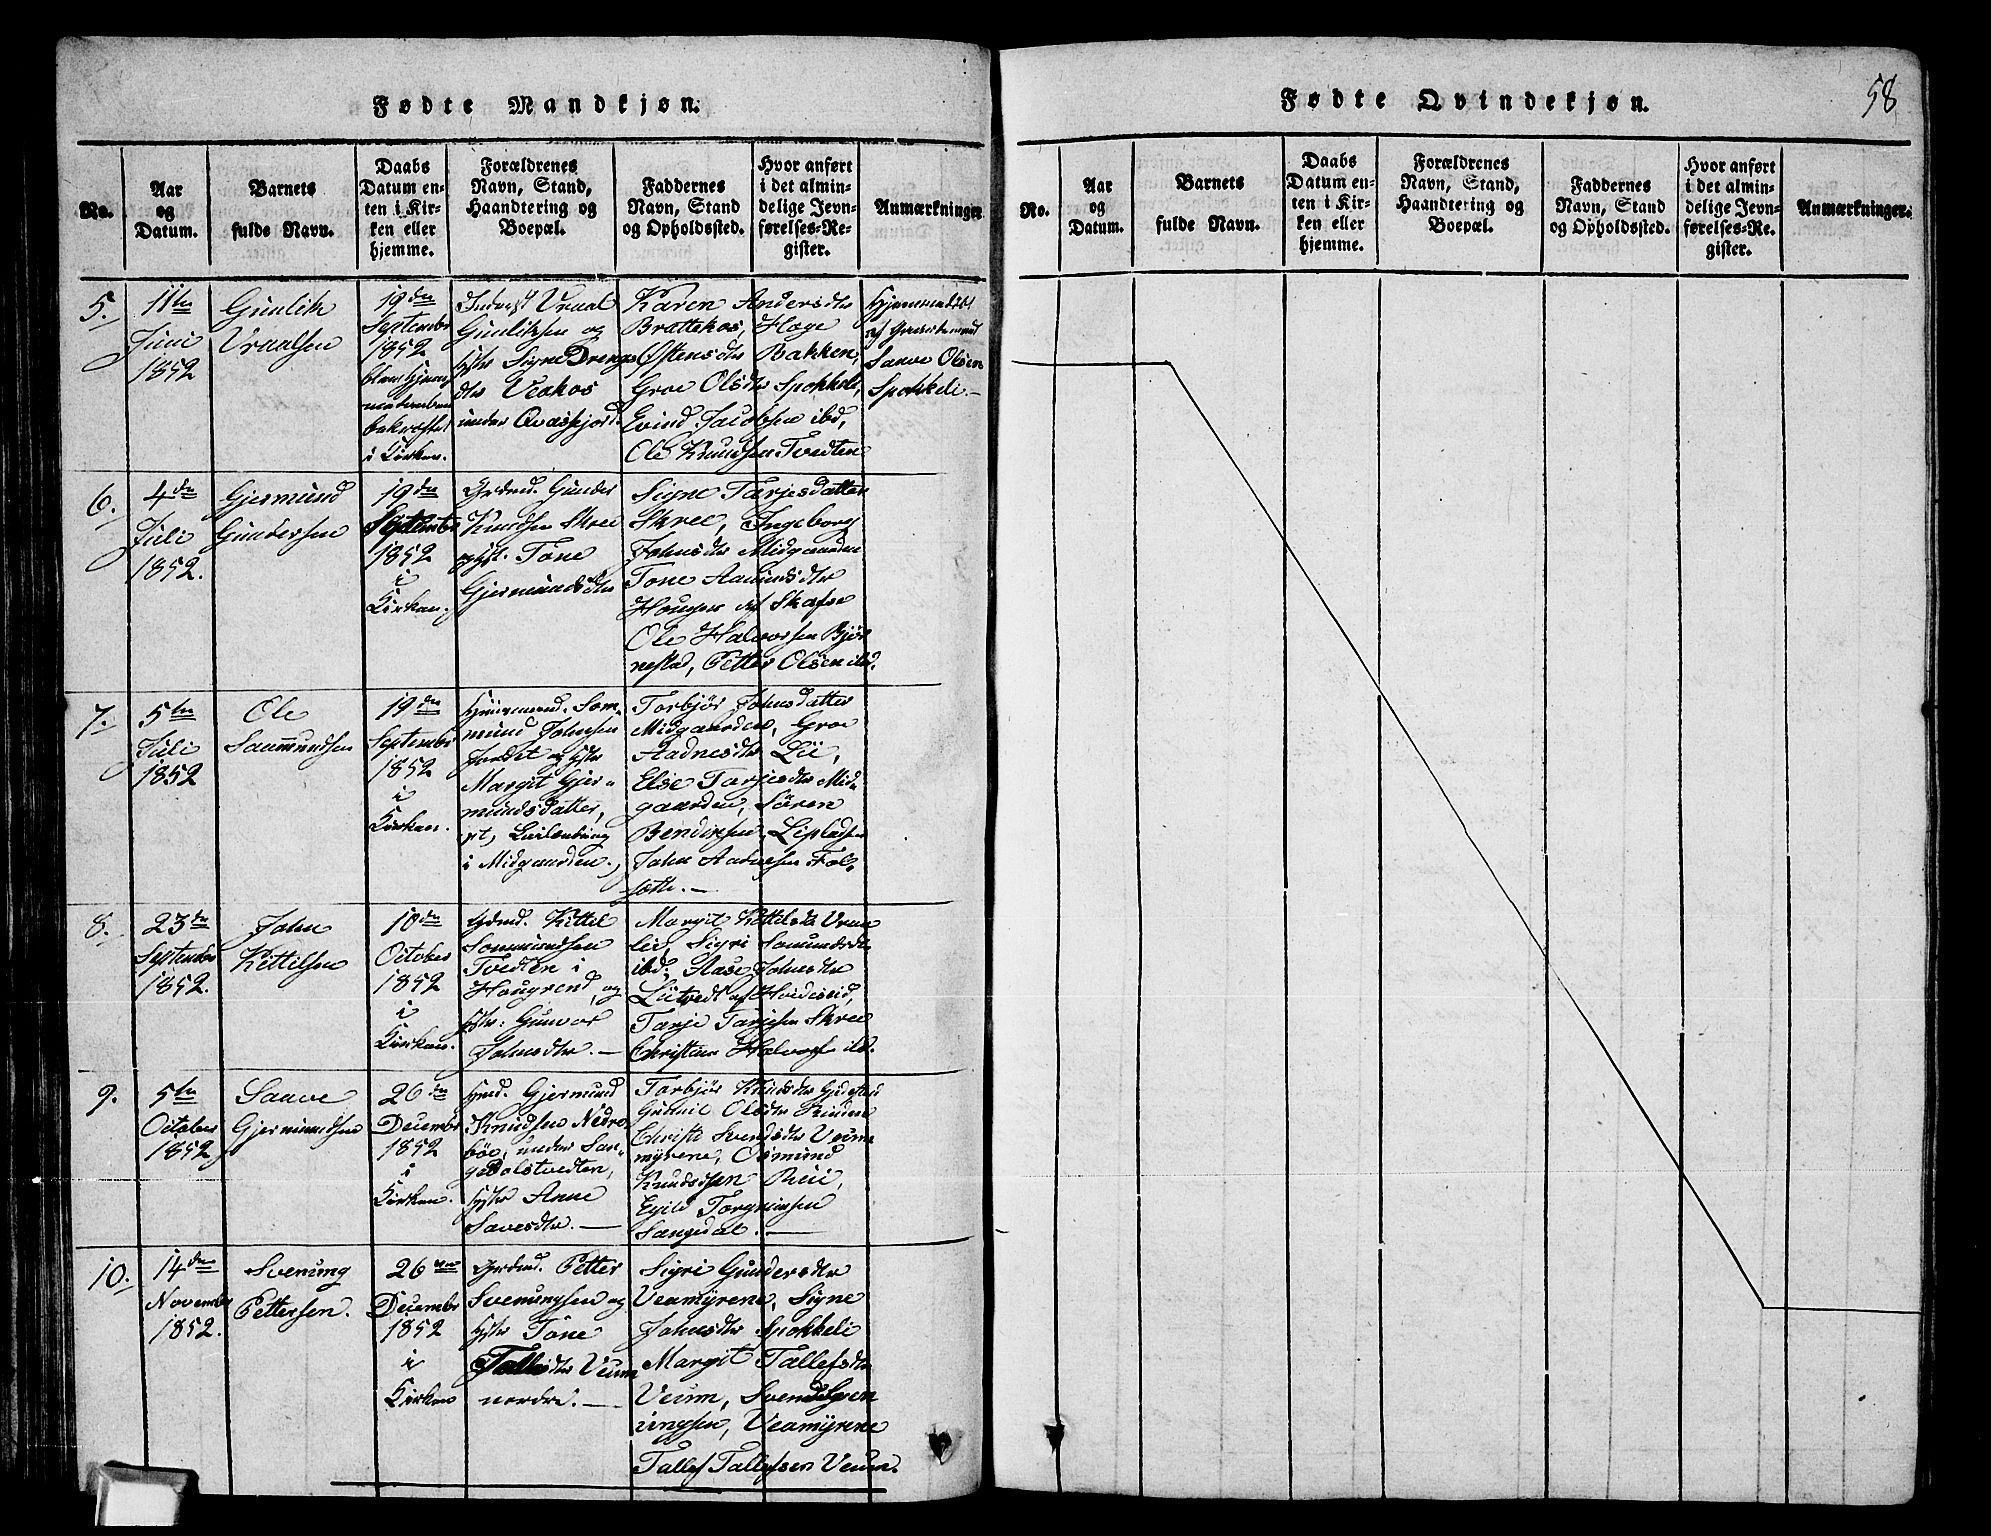 Fødte Mandkjøn.
No.
Aar
og
Datum.
Barnets
fulde Navn.
Daabs
Datum en-
ten i Kir-
ken eller
hjemme.
Forældrenes
Navn, Stand,
Haandtering og
Boepæl.
Faddernes
Navn, Stand
og Opholdssted.
Hvor anført
i det almin-
delige Jevn-
førelses-Re-
gister.
Anmærkninger
5.
11te
Juni
1852
Gunlik
Vraalsen
19de
September
1852
i Kirken.
Vraal
Gunliksen og
Hstr Signe Drengs
dtr Veakos
under Qvasfjord.
Karen Andersdtr
Brattekos, Hæge
Østensdtr Bakken,
Groe Olsdtr Spokkeli,
Evind Jacobsen ibd,
Ole Knudsen Tvedten
Hjemmedøbt
af
Saave Olsen
Spokkeli.—
6.
4de
Juli
1852.
Gjermund
Gundersen
19de
September
1852
i
Kirken.
Grdmd. Gunder
Knudsen Skree
og Hst. Tone
Gjermundsdtr
Signe Tarjesdatter
Skree, Ingeborg
Johnsdtr Midgaarden
Tone Aamundsdtr
Hougen af Skafse
Ole Halvorsen Bjør
nestad, Petter Olsen ibd.
7.
5te
Juli
1852
Ole
Saamundsen
19de
September
1852
i
Kirken.
Huusmand. Som-
mund Johnsen
og Hstr
Margit Gjer-
mundsdatter,
i Midgaarden.,
Torbjør Johnsdatter
Midgaarden, Groe
Aadnesdtr Lie,
Else Tarjesdtr Mid-
gaarden, Søren
Bendixsen Lipladsen
John Aadnesen Fol-
sætte.—
8.
23de
September
1852.
John
Kittilsen
10de
October
1852
i
Kirken.
Grdmd. Kittil
Sommundsen
Tvedten i
Hougrend, og
Hstr: Gunvor
Johnsdtr.—
Margit Kittilsdtr Vraa
lid, Sigri Somundsdtr
ibd; Aase Johnsdtr
Liitvedt af Hvideseid,
Tarje Tarjesen Skree
Christian Halvors. ibd.
9.
5te
October
1852
Saave
Gjermundsen
26de
December
1852
i
Kirken.
Hmd. Gjermund
Knudsen Nedre
bøe, under San-
gedalstvedten,
Hstr Anne
Savesdtr.—
Torbjør Knudsdtr
Olsdtr
Christi Svendsdtr Veum
myrene, Osmund
Knudsen Rui,
Egild Torgrimsen
Sangedal.—
10.
14de
November
1852.
Svenung
Pettersen.
26de
December
1852
i
Kirken
Grdmd. Petter
Svenungsen og
Hstr Tone
Tallefsdtr Veum
nordre.—
Sigri Gundersdtr
Veamyrene, Signe
Johnsdtr Spokkeli
Margit Tallefsdtr
Veum, Svend Sven
ungsen, Veamyrene
Tallef Tallefsen Veum.
Fødte Qvindekjøn.
58
No.
Aar
og
Datum.
Barnets
fulde Navn.
Daabs
Datum en-
ten i Kir-
ken eller
hjemme.
Forældrenes
Navn, Stand,
Haandtering og
Boepæl.
Faddernes
Navn, Stand
og Opholdssted.
Hvor anført
i det almin-
delige Jevn-
førelses-Re-
gister.
Anmærkninger.